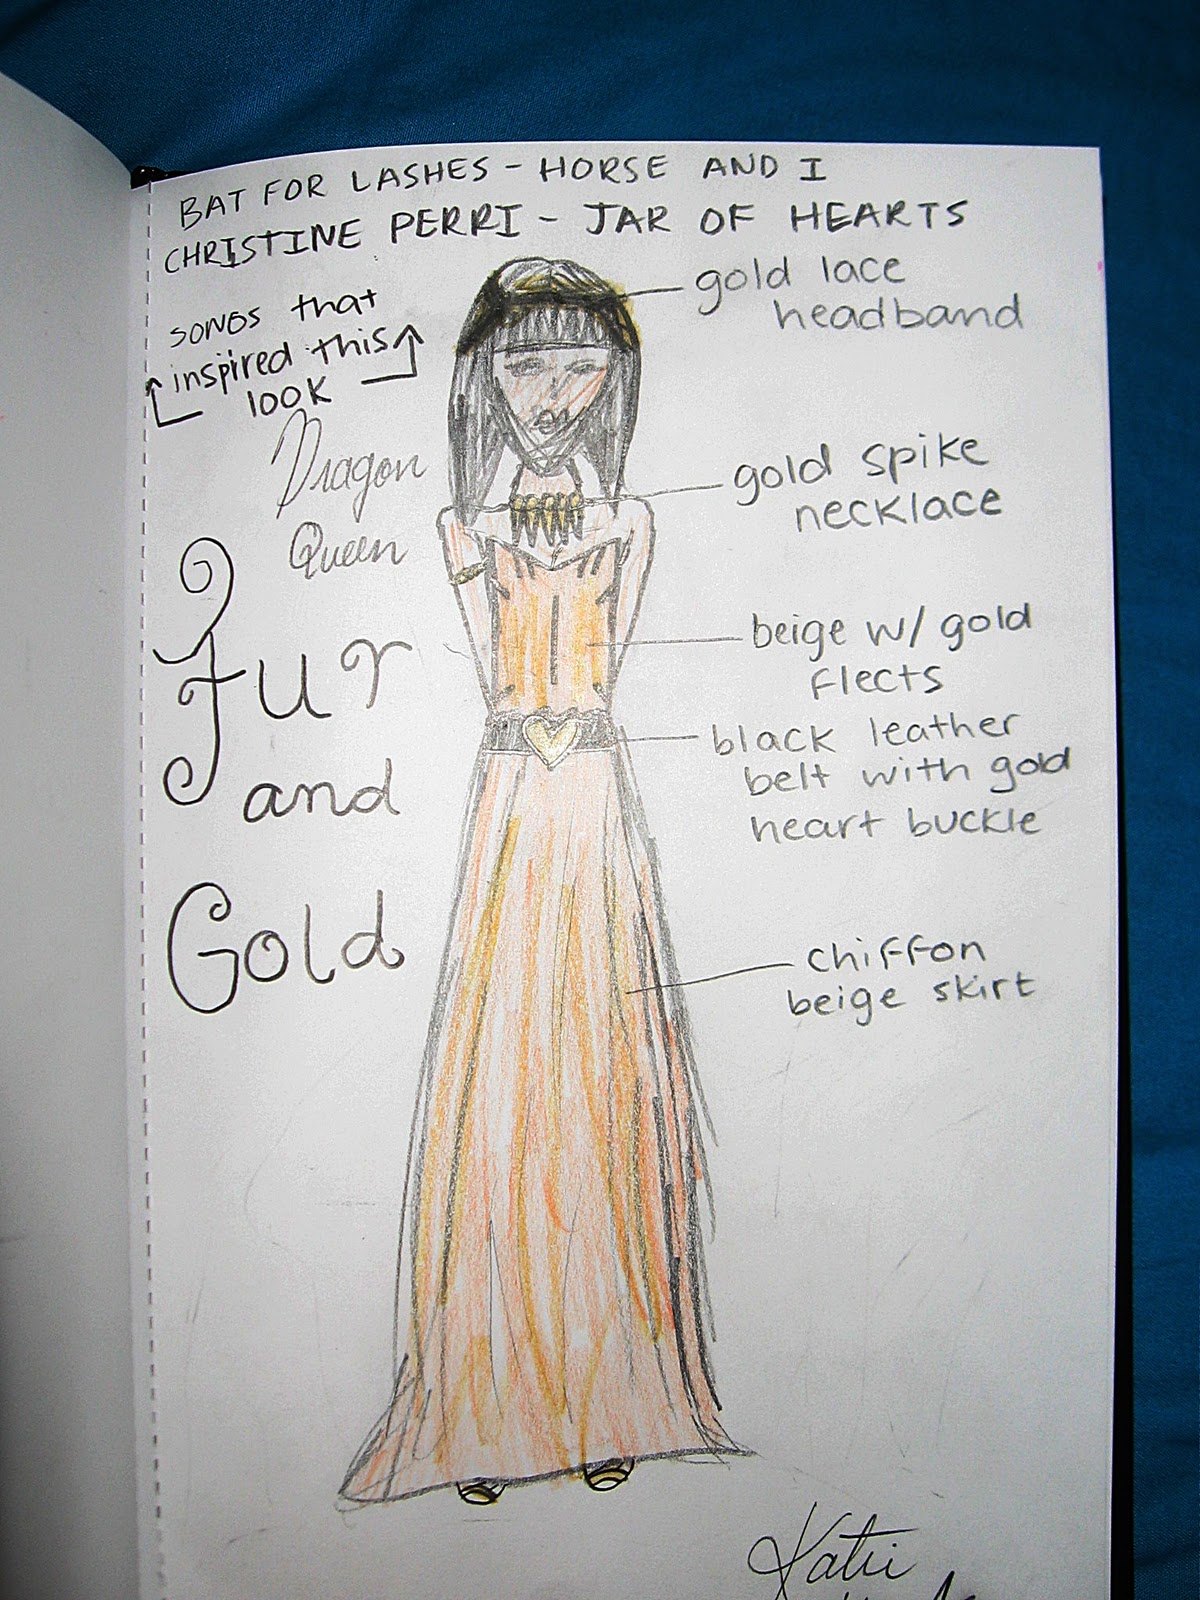 BAT FOR LASHES - HORSE AND I
CHRISTINE PERRI - JAR OF HEARTS
SONGS that
inspired this
look
Dragon
Queen
Fur
and
Gold
gold lace
headband
gold spike
necklace
beige w/ gold
flects
black leather
belt with gold
heart buckle
chiffon
beige skirt
Katii